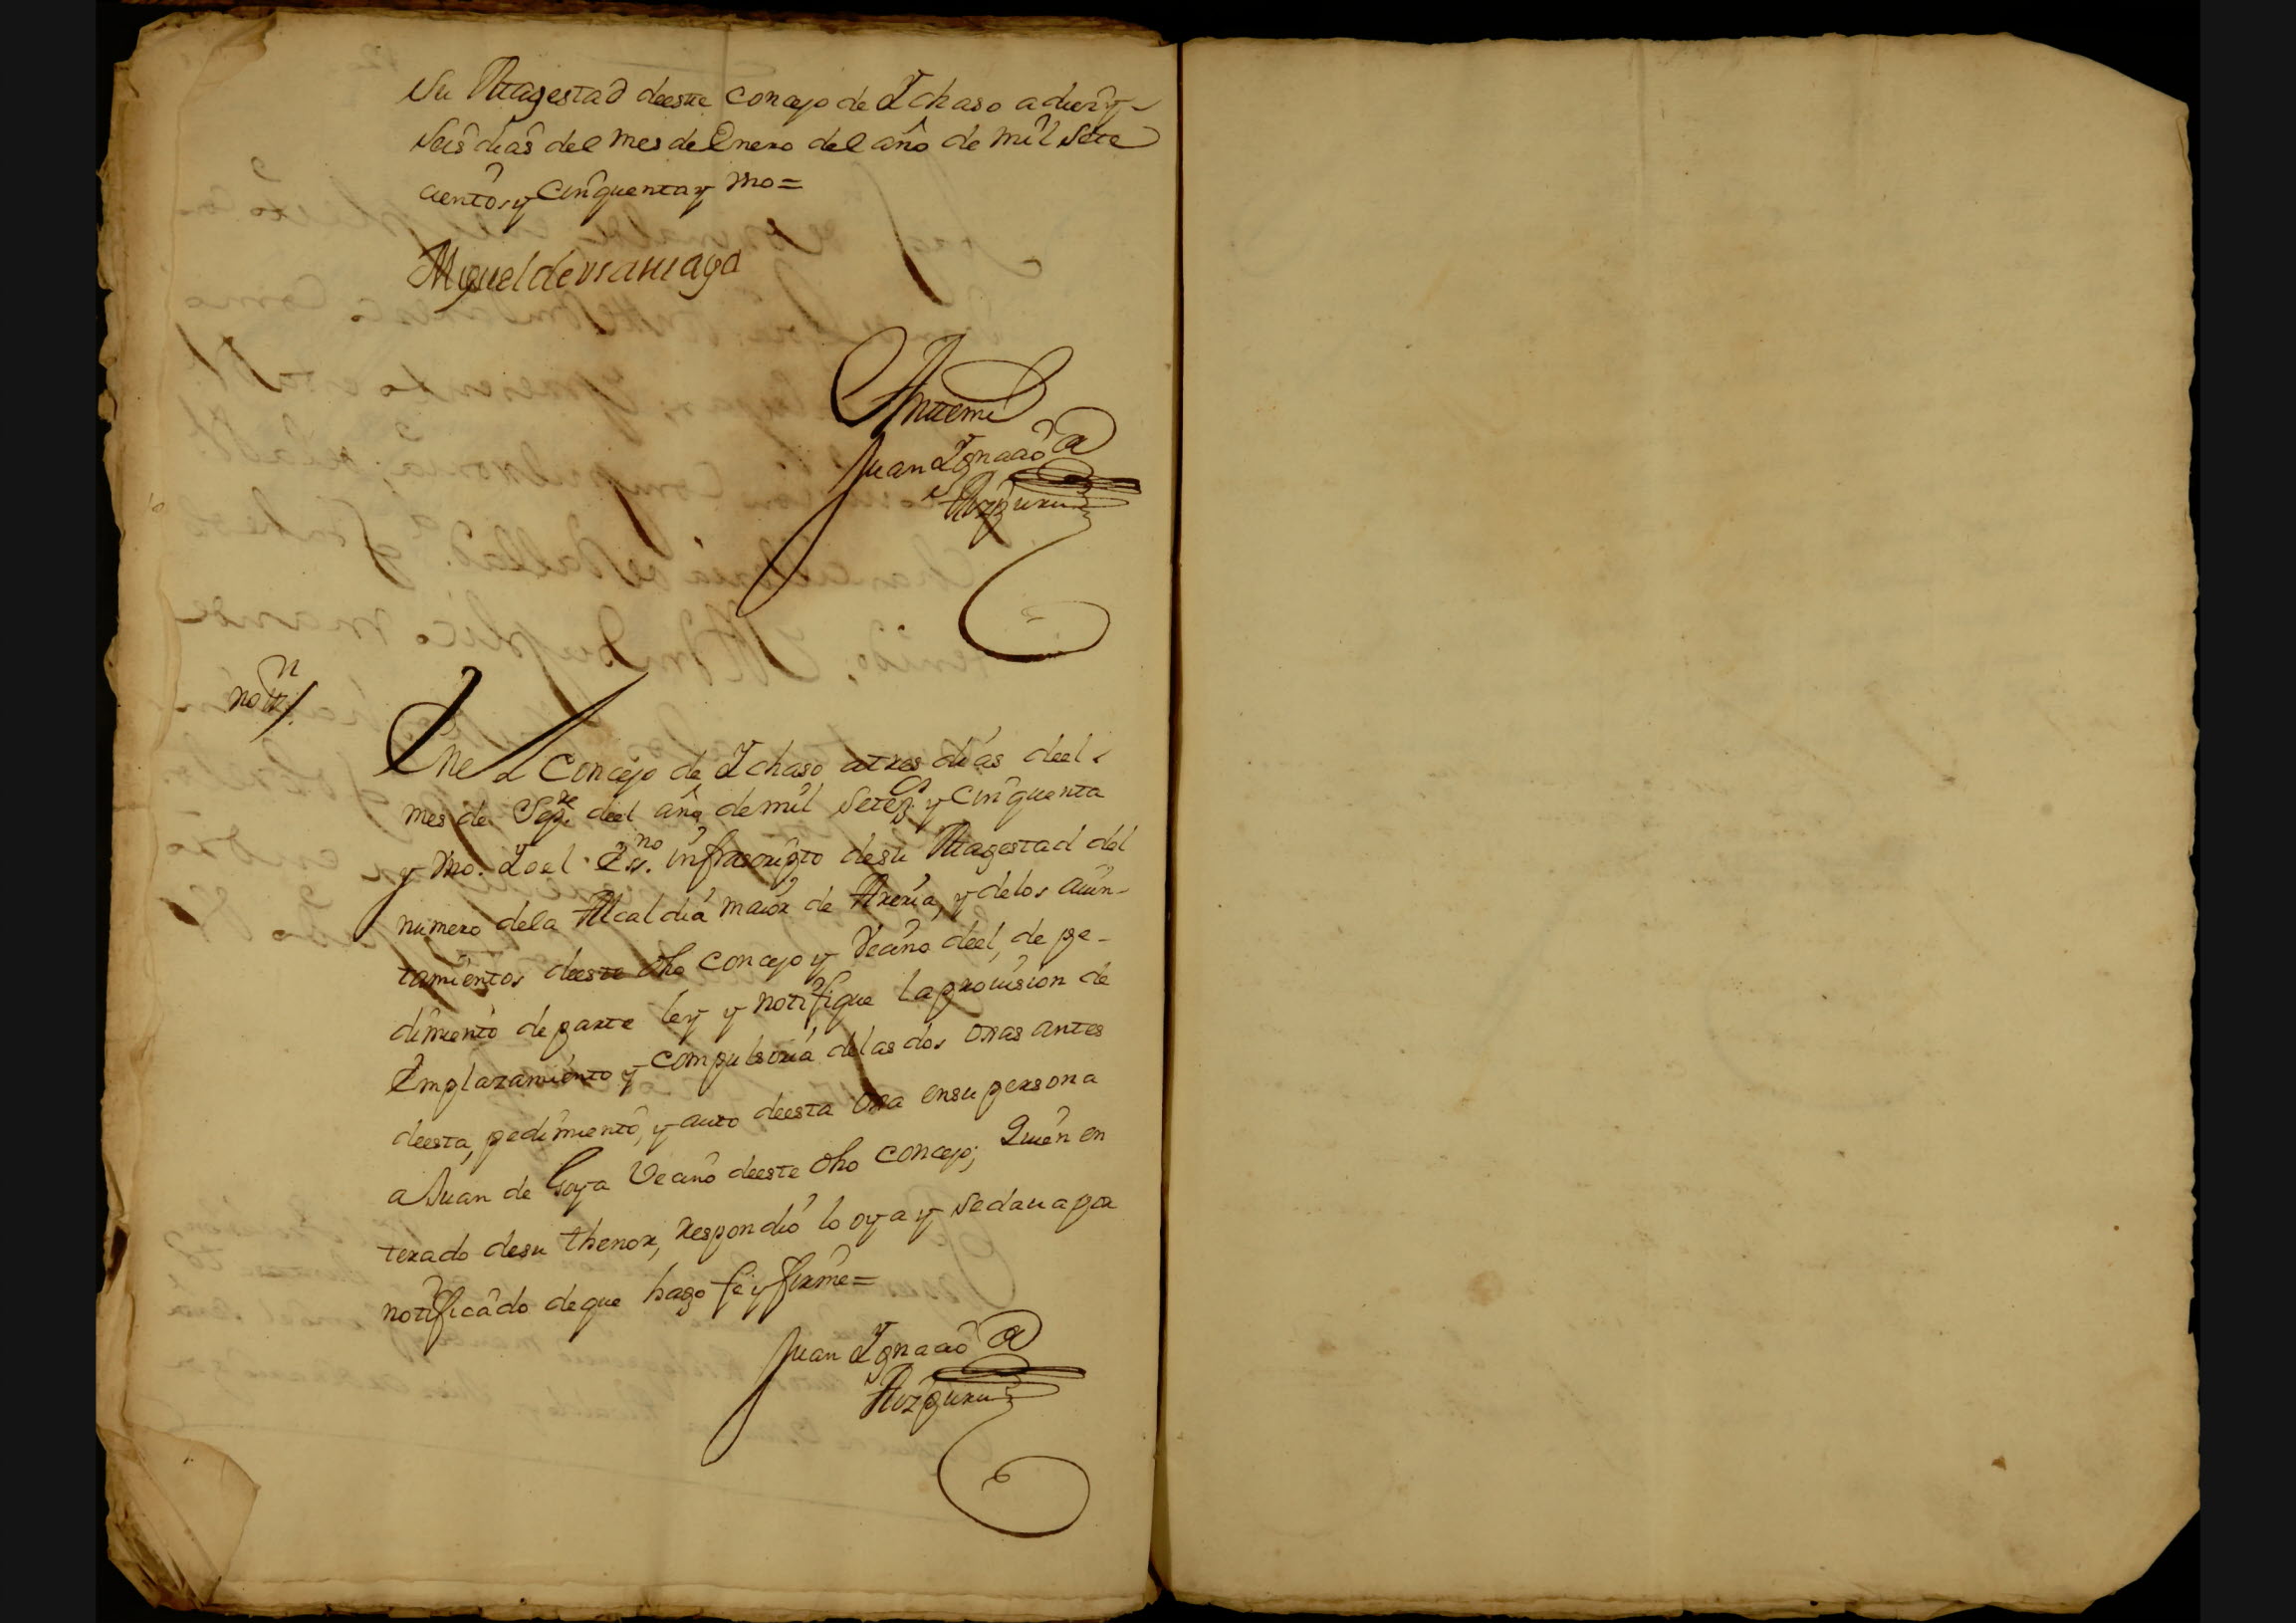 Su Magestad deeste concejo de Ychaso a diez y
Seis dias del mes de Enero del año de mil Sete
cientos y Cinquenta y Vno=
Miguel de
Antemi
Juan Ygnacio de
Aozpuru
nottn/.
En el Concejo de Ychaso, a tres dias deel
mes de Sepre. deel año de mil Setezs. y Cinquenta
y Vno. Yo el Esno. infrascripto desu Magestad del
numero dela Alcaldia maior de Areria, y delos aiun-
tamientos deeste dho concejo y Vecino deel, de pe-
dimiento de parte ley y notifique la prouision de
Emplazamiento y compulsoria delas dos oxas antes
deesta, pedimiento, y auto deesta oxa ensu persona
a Juan de Goya Vecino deeste dho concejo; Quien en
terado desu thenor, respondio lo oya y sedaua por
notificado deque hago fe y firme=
Juan Ygnacio de
Aozpuru